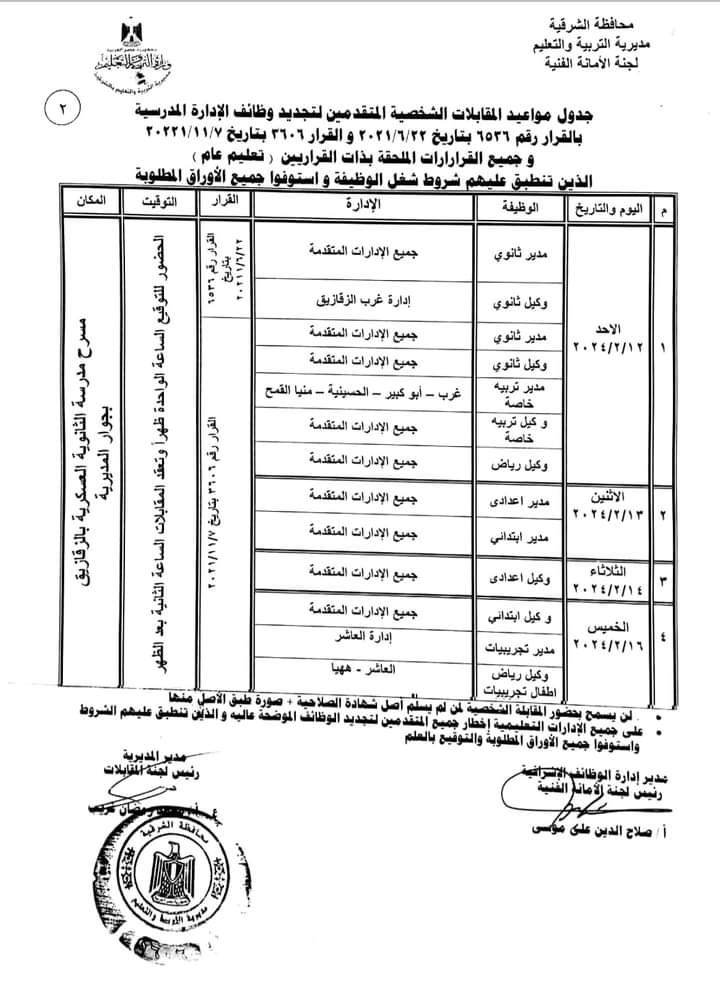 محافظة الشرقية
مديرية التربية والتعليم
لجنة الأمانة الفنية
جمهورية مصر العربية
وزارة التربية والتعليم
مديرية التربية والتعليم بالشرقية
٢
جدول مواعيد المقابلات الشخصية المتقدمين لتجديد وظائف الإدارة المدرسية
بالقرار رقم ٦٥٣٦ بتاريخ ٢٠٢١/٦/٢٢ و القرار ٣٦٠٦ بتاريخ ٢٠٢٢١/١١/٧
و جميع القرارارات الملحقة بذات القراريين ( تعليم عام )
الذين تنطبق عليهم شروط شغل الوظيفة و استوفوا جميع الأوراق المطلوبة
م اليوم والتاريخ الوظيفة الإدارة القرار التوقيت المكان
١ الاحد ٢٠٢٤/٢/١٢
مدير ثانوي جميع الإدارات المتقدمة
وكيل ثانوي إدارة غرب الزقازيق
القرار رقم ٦٥٣٦ بتاريخ ٢٠٢١/٦/٢٢
مدير ثانوي جميع الإدارات المتقدمة
وكيل ثانوي جميع الإدارات المتقدمة
مدير تربيه خاصة غرب – أبو كبير – الحسينية – منيا القمح
و كيل تربيه خاصة جميع الإدارات المتقدمة
وكيل رياض جميع الإدارات المتقدمة
٢ الاثنين ٢٠٢٤/٢/١٣
مدير اعدادى جميع الإدارات المتقدمة
مدير ابتدائي جميع الإدارات المتقدمة
٣ الثلاثاء ٢٠٢٤/٢/١٤
وكيل اعدادى جميع الإدارات المتقدمة
٤ الخميس ٢٠٢٤/٢/١٦
و كيل ابتدائي جميع الإدارات المتقدمة
مدير تجريبيات إدارة العاشر
وكيل رياض اطفال تجريبيات العاشر - ههيا
القرار رقم ٣٦٠٦ بتاريخ ٢٠٢١/١١/٧
الحضور للتوقيع الساعة الواحدة ظهراً وتعقد المقابلات الساعة الثانية بعد الظهر
مسرح مدرسة الثانوية العسكرية بالزقازيق
بجوار المديرية
• لن يسمح بحضور المقابلة الشخصية لمن لم يسلم أصل شهادة الصلاحية + صورة طبق الأصل منها
• على جميع الإدارات التعليمية إخطار جميع المتقدمين لتجديد الوظائف الموضحة عاليه و الذين تنطبق عليهم الشروط
واستوفوا جميع الأوراق المطلوبة والتوقيع بالعلم
مدير إدارة الوظائف الإشرافية
رئيس لجنة الأمانة الفنية
أ / صلاح الدين على موسى
مدير المديرية
رئيس لجنة المقابلات
رمضان
محافظة الشرقية
مديرية التربية والتعليم